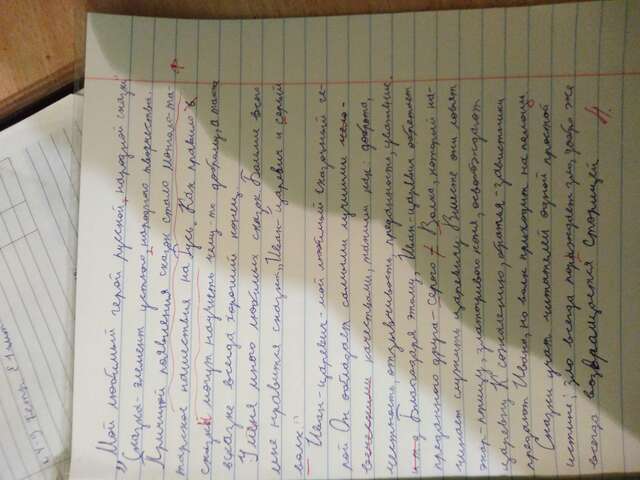 Мой любимый герой русской народной сказки
"Сказка-элемент устного народного творчества.
Причиной появления сказок стало монголо-та-
тарское нашествия на Русь. Как правило в
сказки могут научить чему то доброму, а также
всказке всегда хороший конец.
У меня много любимых сказок. Больше всего
мне нравится сказка "Иван-царевич и серый
волк"
Иван-царевич-мой любимый сказочный ге-
рой. Он обладает самыми лучшими чело-
веческими качествами, такими как: доброта,
честность, отзывчивость, преданность, уважение.
Благодаря этому, Иван-царевич обретает
преданного друга-серого Волка, который на-
чинает служить царевичу. Вместе они ловят
жар-птицу, златогривого коня, освобождают
царевну. К сожалению, братья-завистники
предают Ивана, но волк приходит на помощь
Сказки учат читателей одной простой
истине: зло всегда порождает зло, добро же
всегда возвращается сторицей